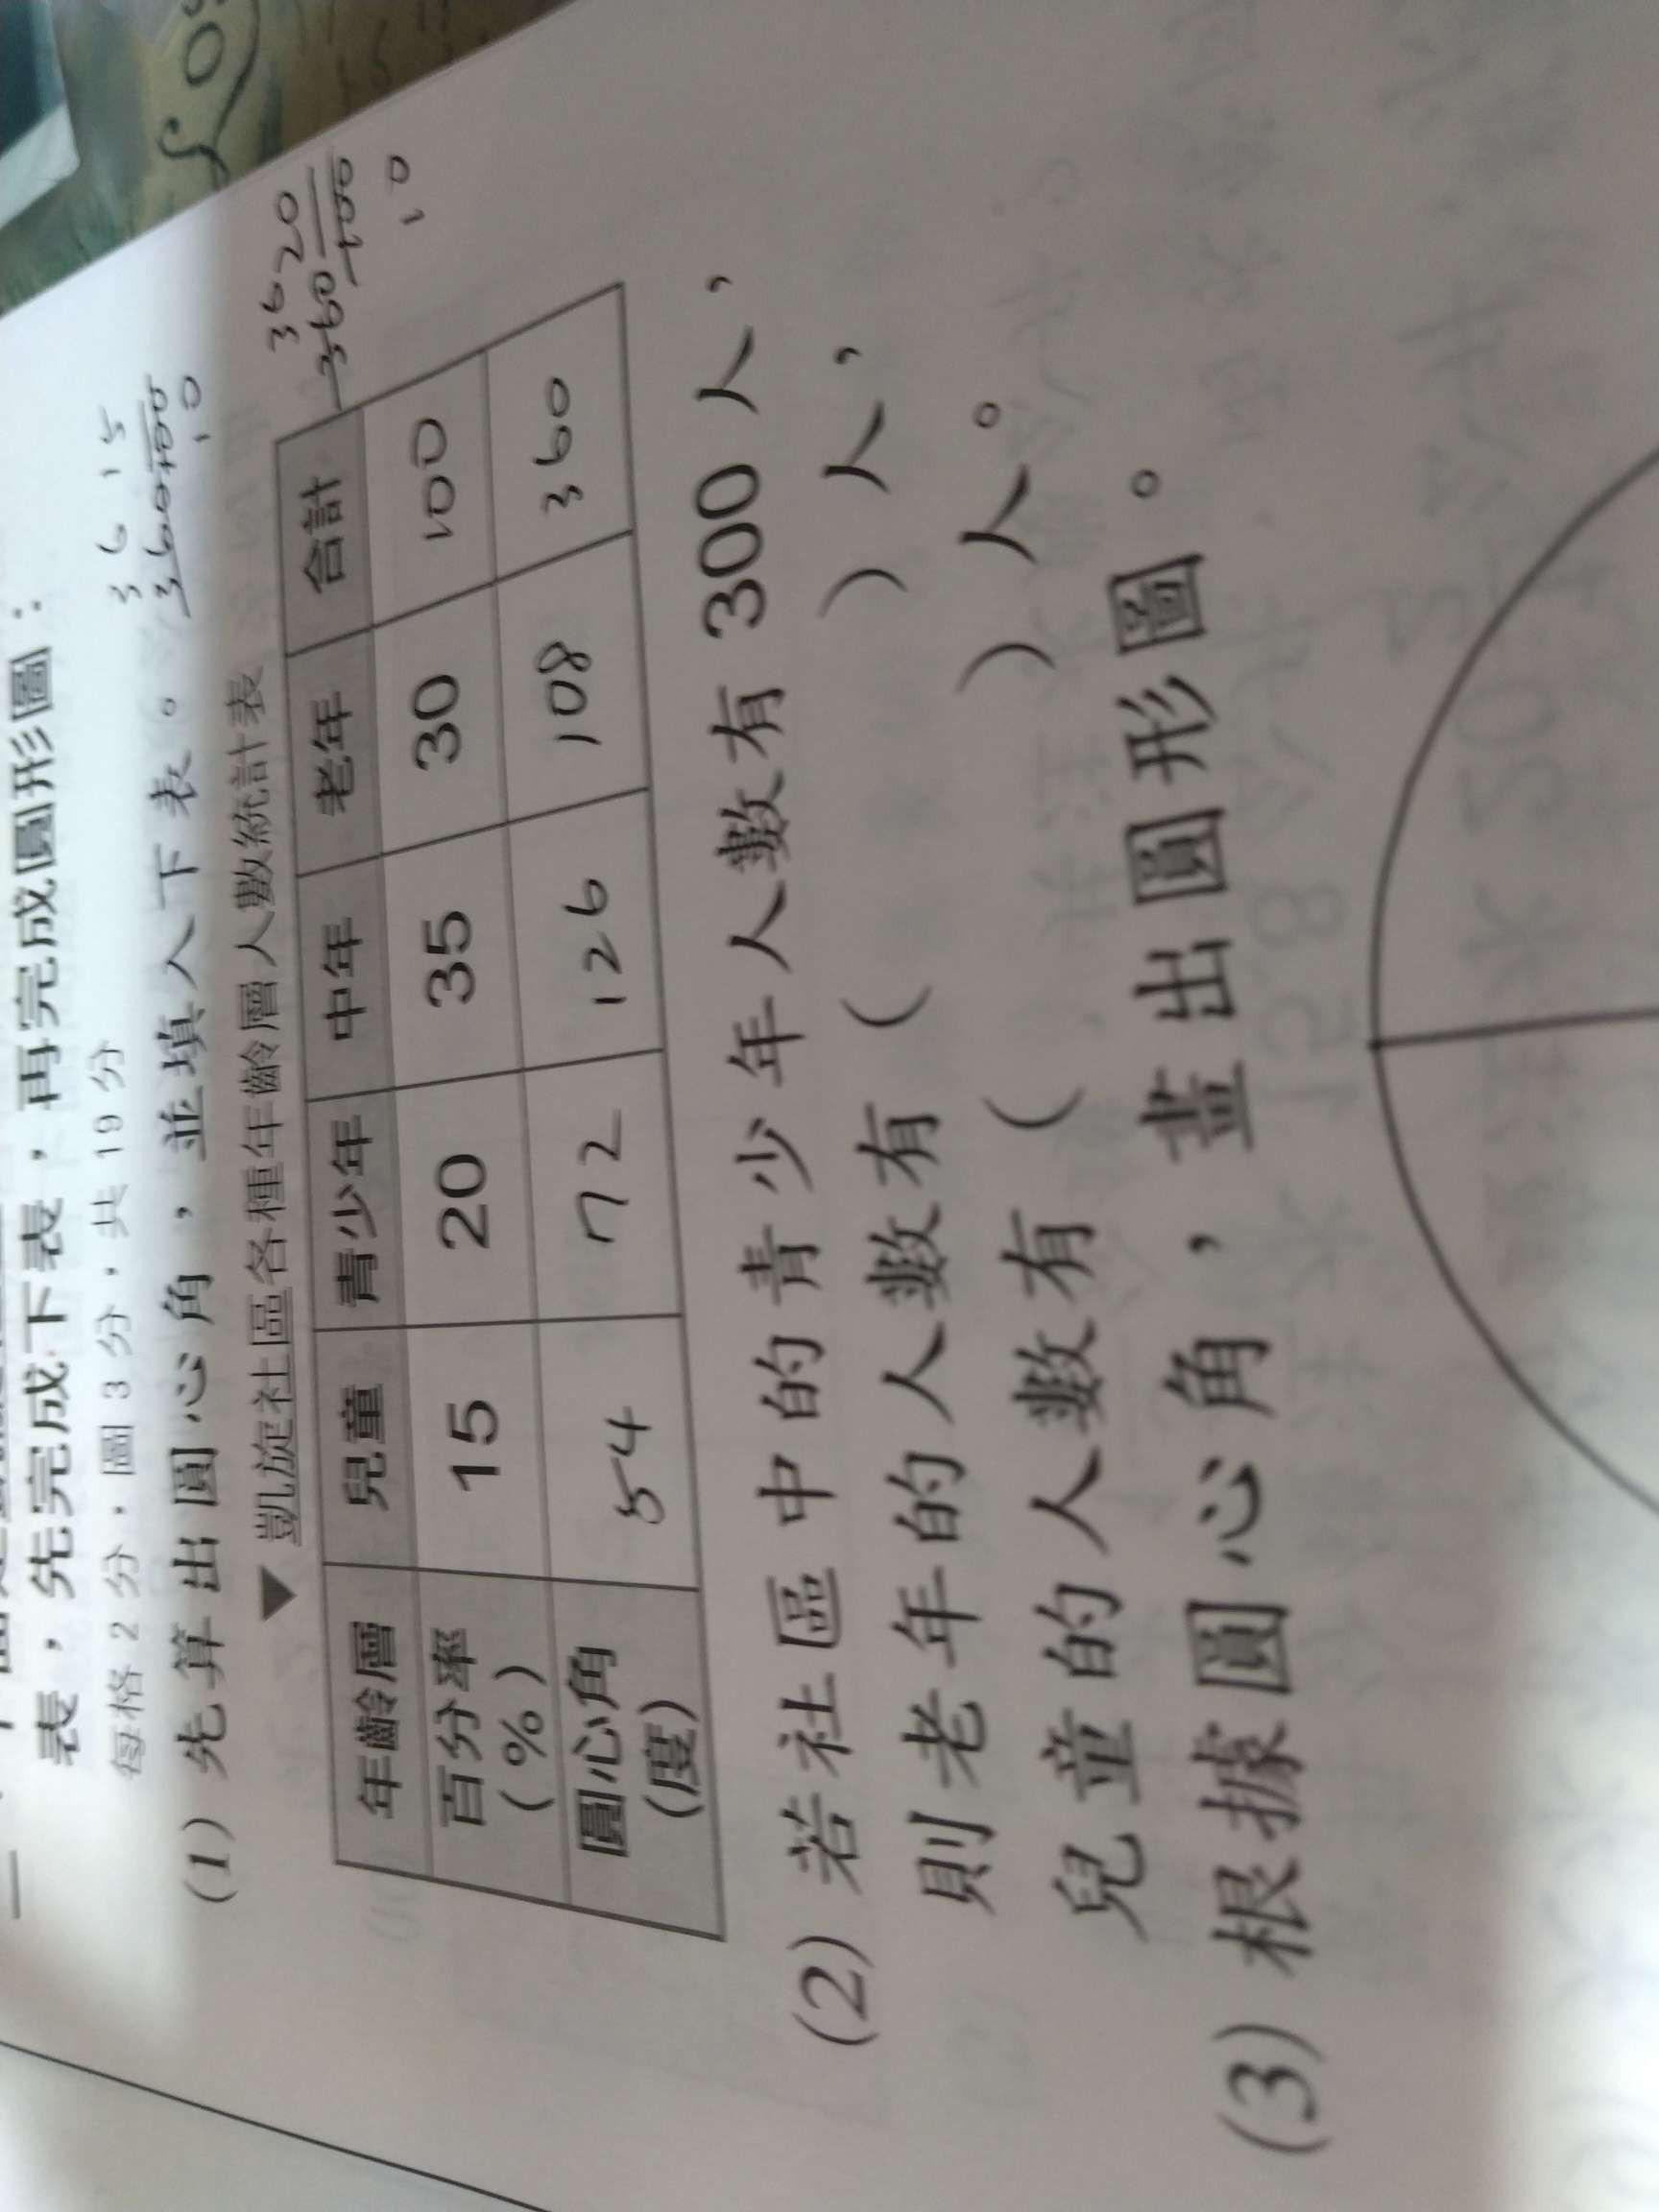 表，先完成下表，再完成圓形圖：
每格 2 分，圖 3 分，共 19 分
(1) 先算出圓心角，並填入下表。
36 15
360 100
10
▼ 凱旋社區各種年齡層人數統計表
36 20
360 100
10
年齡層 兒童 青少年 中年 老年 合計
百分率(%) 15 20 35 30 100
圓心角(度) 54 72 126 108 360
(2) 若社區中的青少年人數有 300 人，
則老年的人數有（ ）人，
兒童的人數有（ ）人。
(3) 根據圓心角，畫出圓形圖。